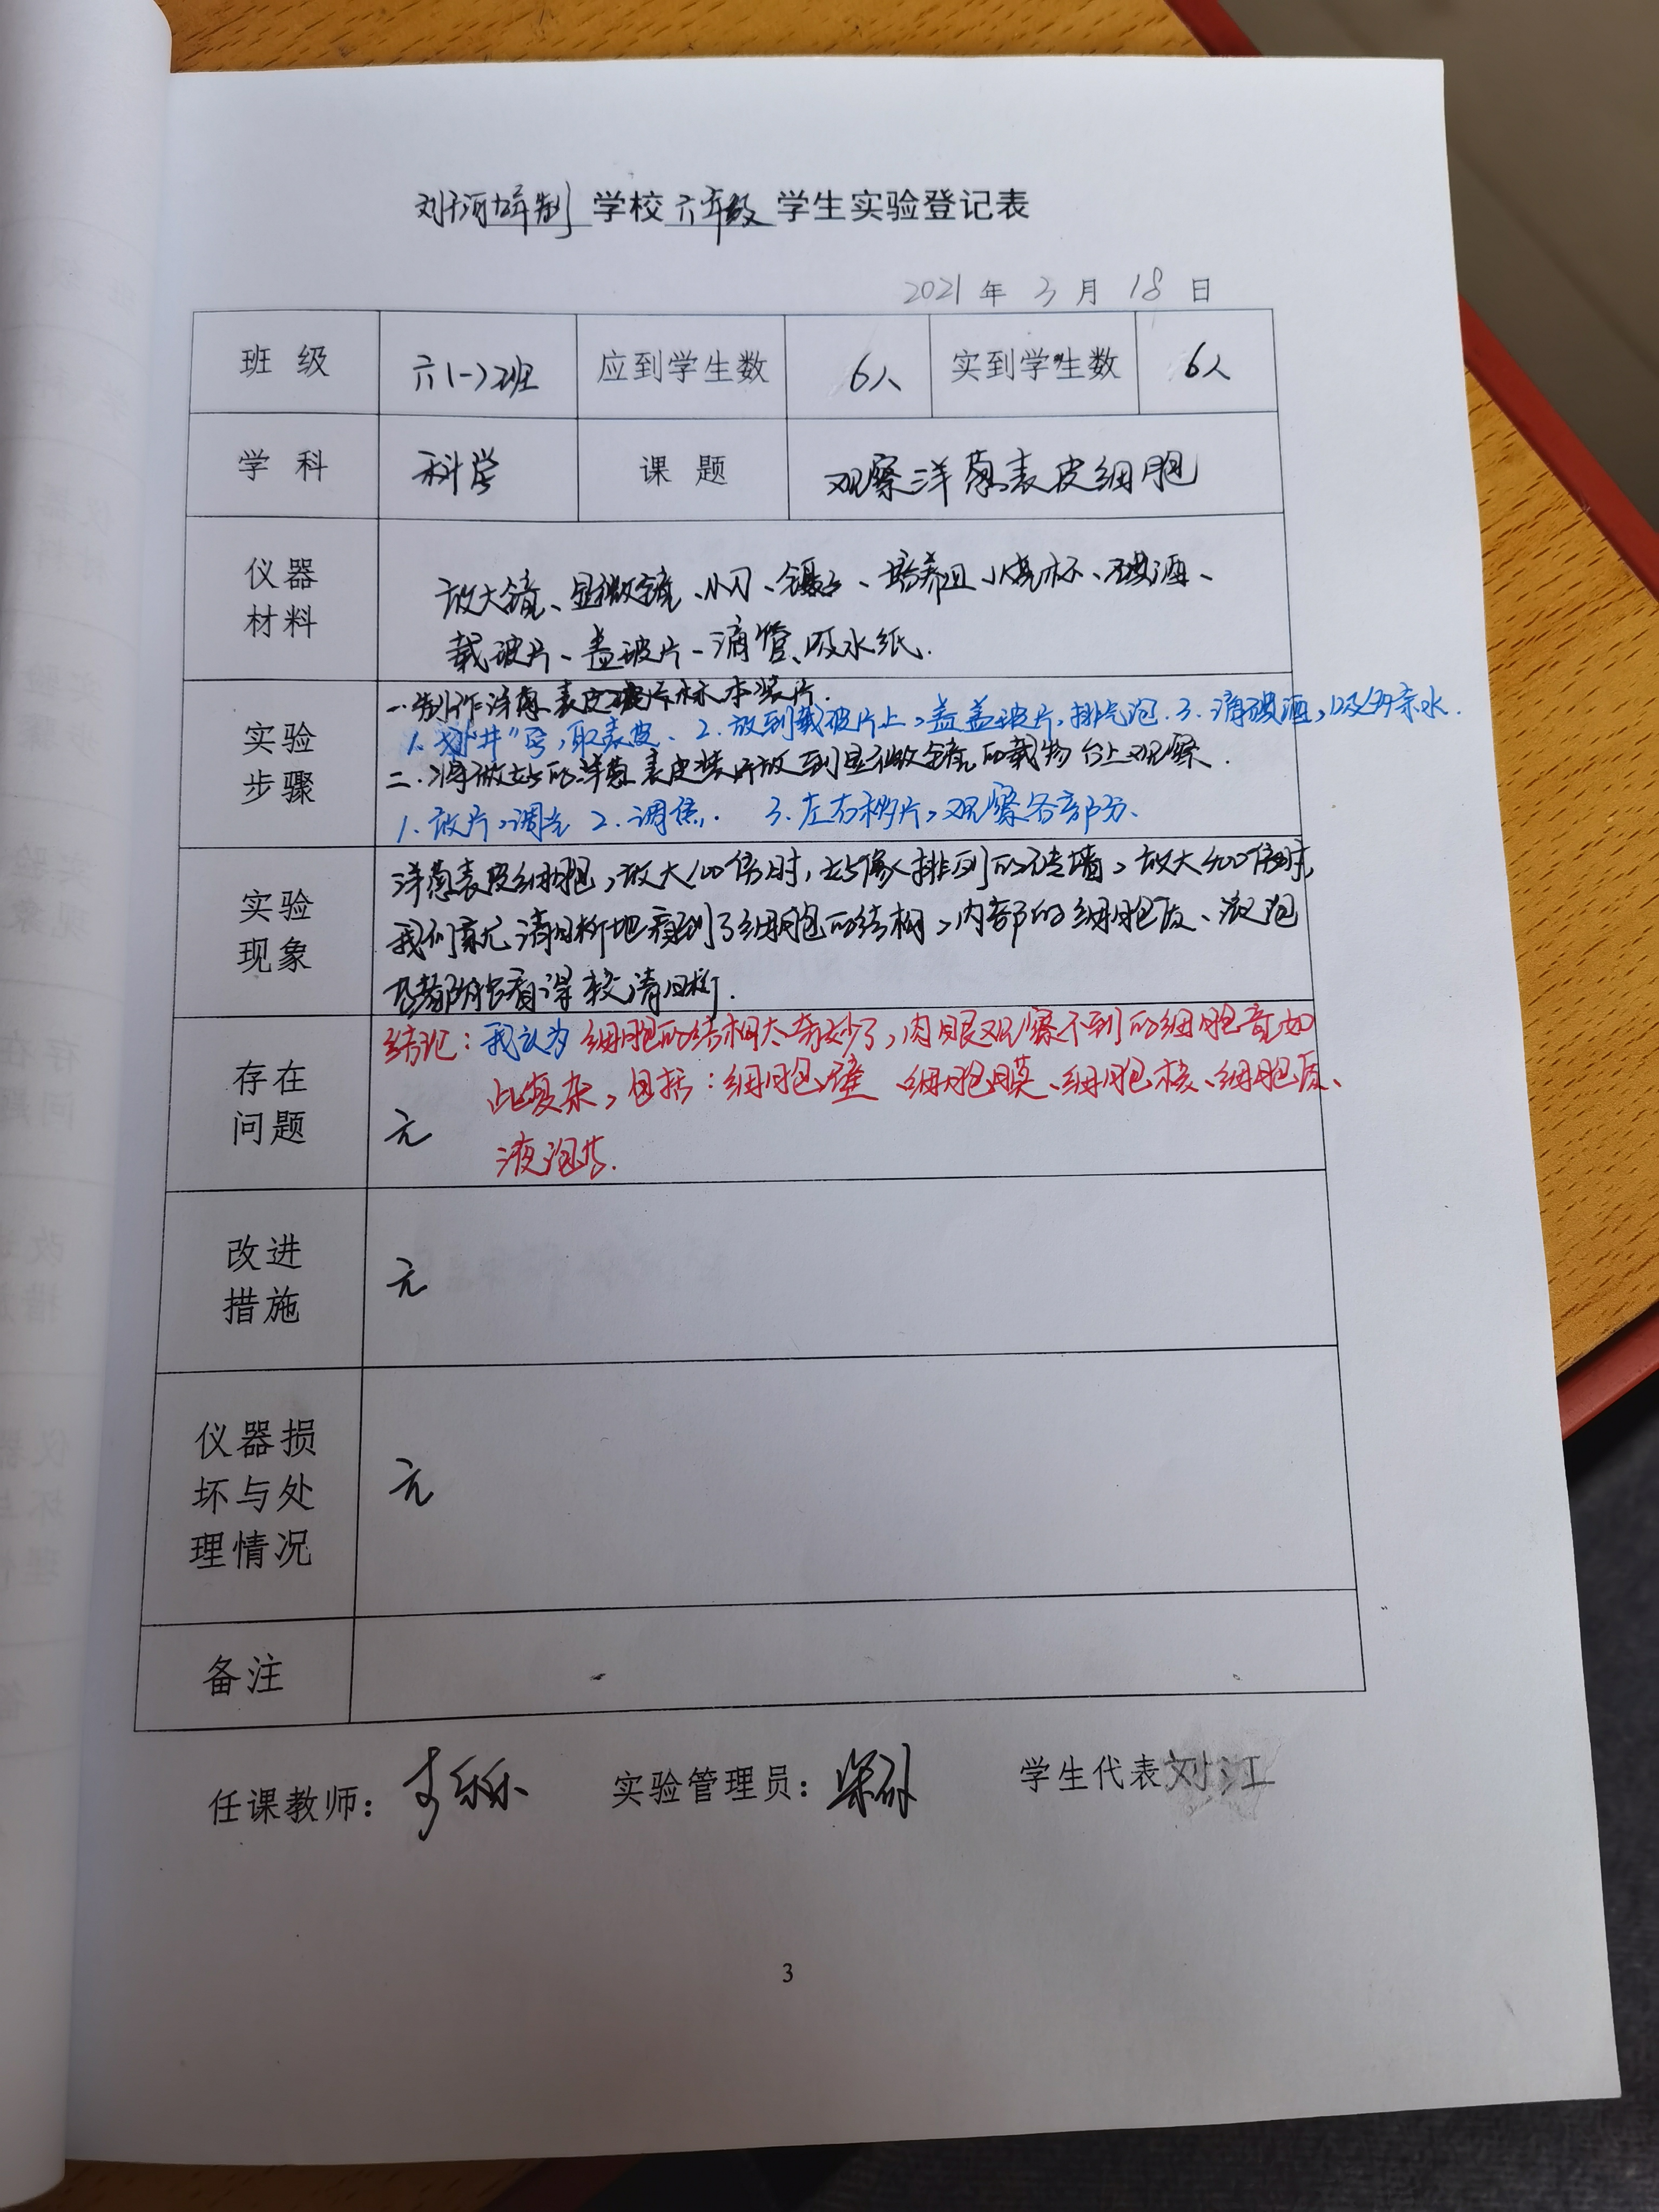 刘河九年制学校六年级学生实验登记表
2021年3月18日
班级 六(一)班 应到学生数 6人 实到学生数 6人
学科 科学 课题 观察洋葱表皮细胞
仪器材料
放大镜、显微镜、小刀、镊子、培养皿、小烧杯、碘酒、
载玻片、盖玻片、滴管、吸水纸.
实验步骤
一.制作洋葱表皮玻片标本装片.
1.划"井"号,取表皮、2.放到载玻片上,盖盖玻片,排气泡.3.滴碘酒,以及多余水.
二.将做好的洋葱表皮装片放到显微镜的载物台上观察.
1.放片,调光 2.调焦. 3.左右移片,观察各部分、
实验现象
洋葱表皮细胞,放大100倍时,好像人排列的砖墙,放大400倍时,
我们就清晰地看到了细胞的结构,内部的细胞质、液泡
都能看得较清晰.
存在问题
结论:我认为细胞的结构太奇妙了,肉眼观察不到的细胞竟如
此复杂,包括:细胞壁、细胞膜、细胞核、细胞质、
无 液泡等.
改进措施
无
仪器损坏与处理情况
无
备注
任课教师: 实验管理员: 学生代表刘江
3